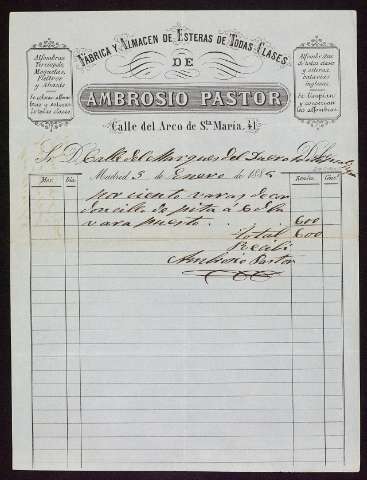 FÁBRICA Y ALMACEN DE ESTERAS DE TODAS CLASES
DE
AMBROSIO PASTOR
Calle del Arco de Sta. María, 41
Alfombras
Terciopelo,
Moquetas,
Fieltros
y Abacás
Alfombras
de todas clases
y esteras
inglesas
Se limpian
y conservan
las alfombras
Sr. D. Calle del Marques del Duero
Madrid 3 de Enero de 188
Mes. Día. Reales. Cént.
Por ciento varas de cor
doncillo de pita á 6 de la
vara puesto 600
Total 600
Recibí
Ambrosio Pastor